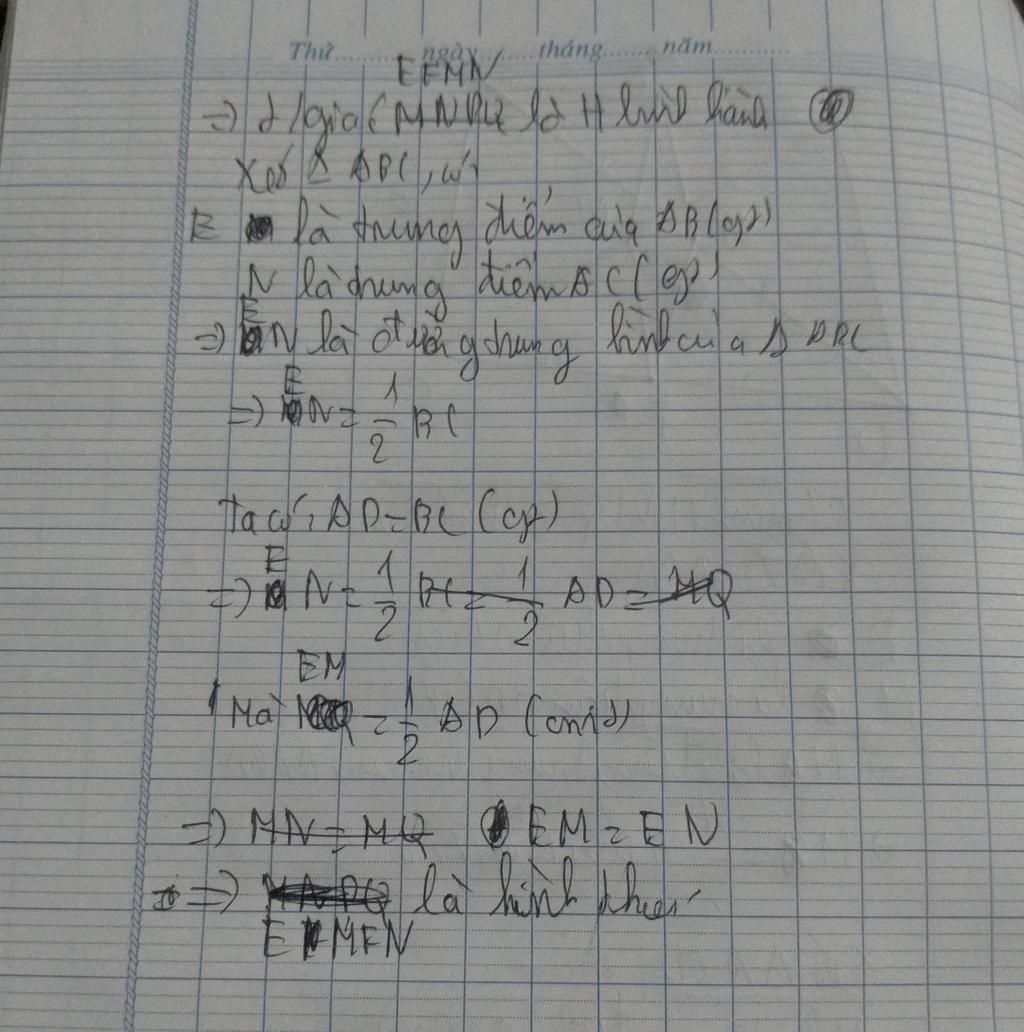 Thứ........ngày........tháng........năm............
EFMN
=> t/giác MNPQ là H bình hành
Xét Δ ABC, có
E là trung điểm của AB (gt)
N là trung điểm AC (gt)
E
=> N là đường trung bình của Δ ABC
E
=> N = 1/2 BC
Ta có: AD = BC (gt)
E
=> N = 1/2 BC = 1/2 AD = MQ
EM
Mà = 1/2 AD (cmt)
=> MN = MQ EM = EN
=> là hình thoi
EMFN